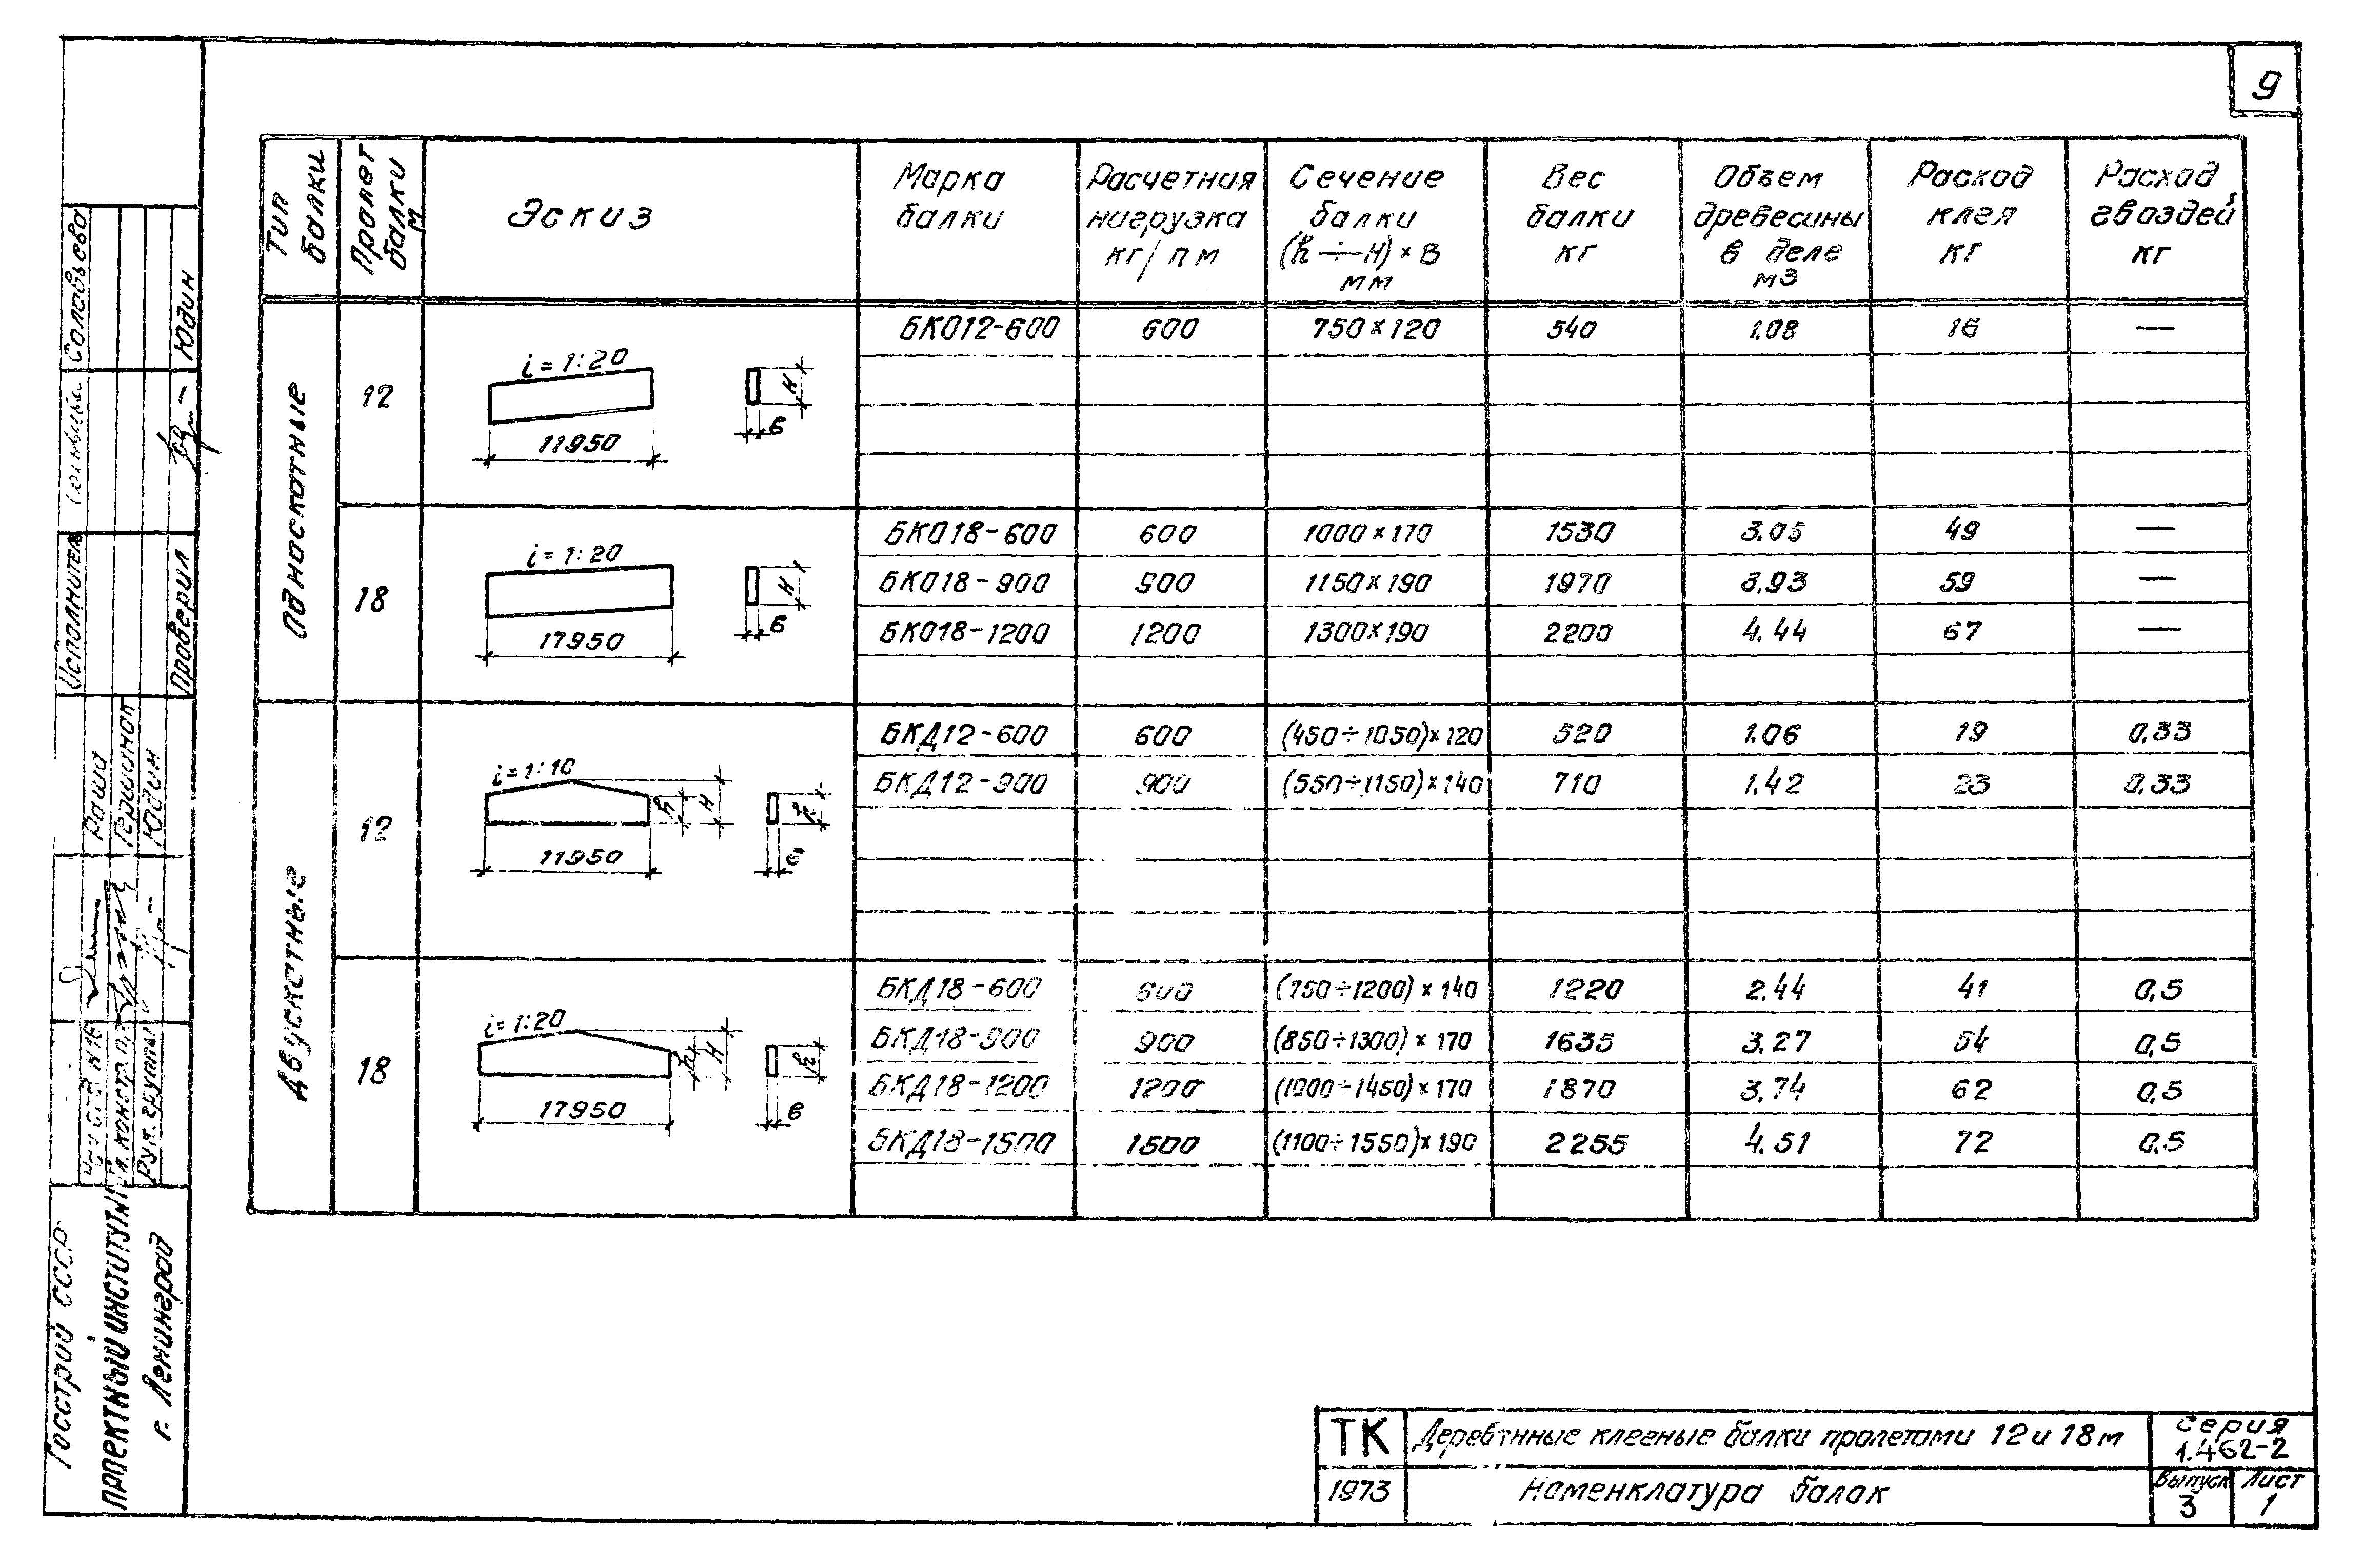 9
Тип балки
Пролет балки м
Эскиз
Марка балки
Расчетная нагрузка кг/пм
Сечение балки (h÷H)×В мм
Вес балки кг
Объем древесины в деле м3
Расход клея кг
Расход гвоздей кг
Односкатные
12
i=1:20
11950
H
в
БКО12-600 600 750×120 540 1.08 16 —
18
i=1:20
17950
H
в
БКО18-600 600 1000×170 1530 3.05 49 —
БКО18-900 900 1150×190 1970 3.93 59 —
БКО18-1200 1200 1300×190 2200 4.44 67 —
Двускатные
12
i=1:10
11950
h
H
h
в
БКД12-600 600 (450÷1050)×120 520 1.06 19 0,33
БКД12-900 900 (550÷1150)×140 710 1.42 23 0,33
18
i=1:20
17950
h
H
h
в
БКД18-600 600 (750÷1200)×140 1220 2.44 41 0,5
БКД18-900 900 (850÷1300)×170 1635 3.27 54 0,5
БКД18-1200 1200 (1000÷1450)×170 1870 3.74 62 0,5
БКД18-1500 1500 (1100÷1550)×190 2255 4.51 72 0,5
Соловьева
Юдин
Исполнитель
Проверил
Раша
Гершанок
Юдин
Гл. констр.
Рук. группы
Госстрой СССР
ПРОЕКТНЫЙ ИНСТИТУТ №1
г. Ленинград
ТК
Деревянные клееные балки пролетами 12 и 18 м
серия
1.462-2
1973
Номенклатура балок
Выпуск
3
Лист
1